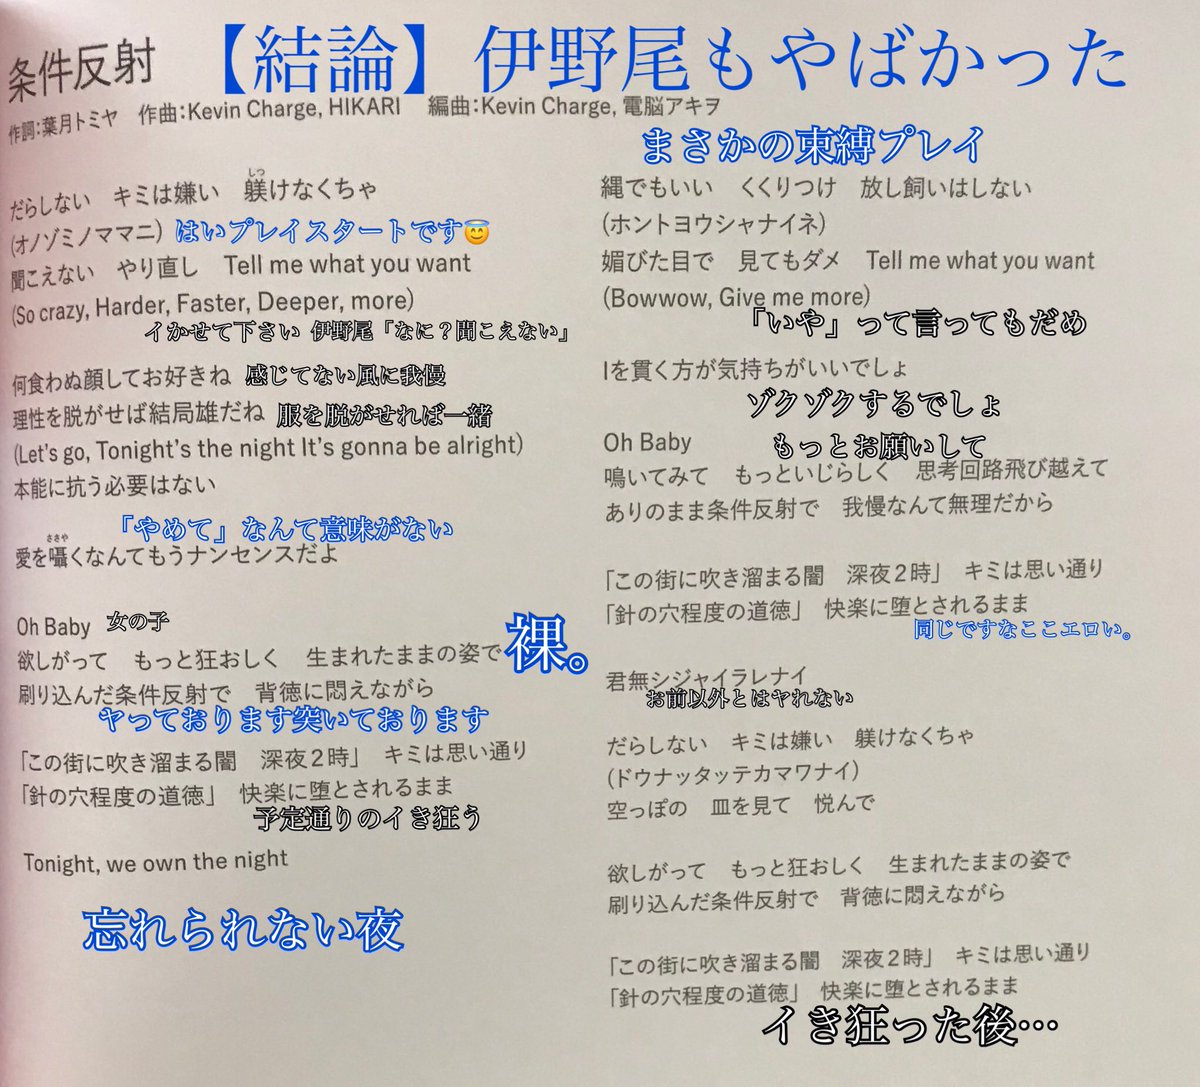 【結論】伊野尾もやばかった
条件反射
作詞：葉月トミヤ　作曲：Kevin Charge, HIKARI　編曲：Kevin Charge, 電脳アキヲ
しつ
だらしない　キミは嫌い　躾けなくちゃ
(オノゾミノママニ) はいプレイスタートです😇
聞こえない　やり直し　Tell me what you want
(So crazy, Harder, Faster, Deeper, more)
イかせて下さい 伊野尾「なに？聞こえない」
何食わぬ顔してお好きね 感じてない風に我慢
理性を脱がせば結局雄だね 服を脱がせれば一緒
(Let's go, Tonight's the night It's gonna be alright)
本能に抗う必要はない
「やめて」なんて意味がない
ささや
愛を囁くなんてもうナンセンスだよ
Oh Baby 女の子
欲しがって　もっと狂おしく　生まれたままの姿で 裸。
刷り込んだ条件反射で　背徳に悶えながら
ヤっております突いております
「この街に吹き溜まる闇　深夜2時」　キミは思い通り
「針の穴程度の道徳」　快楽に堕とされるまま
予定通りのイき狂う
Tonight, we own the night
忘れられない夜
まさかの束縛プレイ
縄でもいい　くくりつけ　放し飼いはしない
(ホントヨウシャナイネ)
媚びた目で　見てもダメ　Tell me what you want
(Bowwow, Give me more)
「いや」って言ってもだめ
Iを貫く方が気持ちがいいでしょ
ゾクゾクするでしょ
Oh Baby もっとお願いして
鳴いてみて　もっといじらしく　思考回路飛び越えて
ありのまま条件反射で　我慢なんて無理だから
「この街に吹き溜まる闇　深夜2時」　キミは思い通り
「針の穴程度の道徳」　快楽に堕とされるまま
同じですなここエロい。
君無シジャイラレナイ
お前以外とはヤれない
だらしない　キミは嫌い　躾けなくちゃ
(ドウナッタッテカマワナイ)
空っぽの　皿を見て　悦んで
欲しがって　もっと狂おしく　生まれたままの姿で
刷り込んだ条件反射で　背徳に悶えながら
「この街に吹き溜まる闇　深夜2時」　キミは思い通り
「針の穴程度の道徳」　快楽に堕とされるまま
イき狂った後…